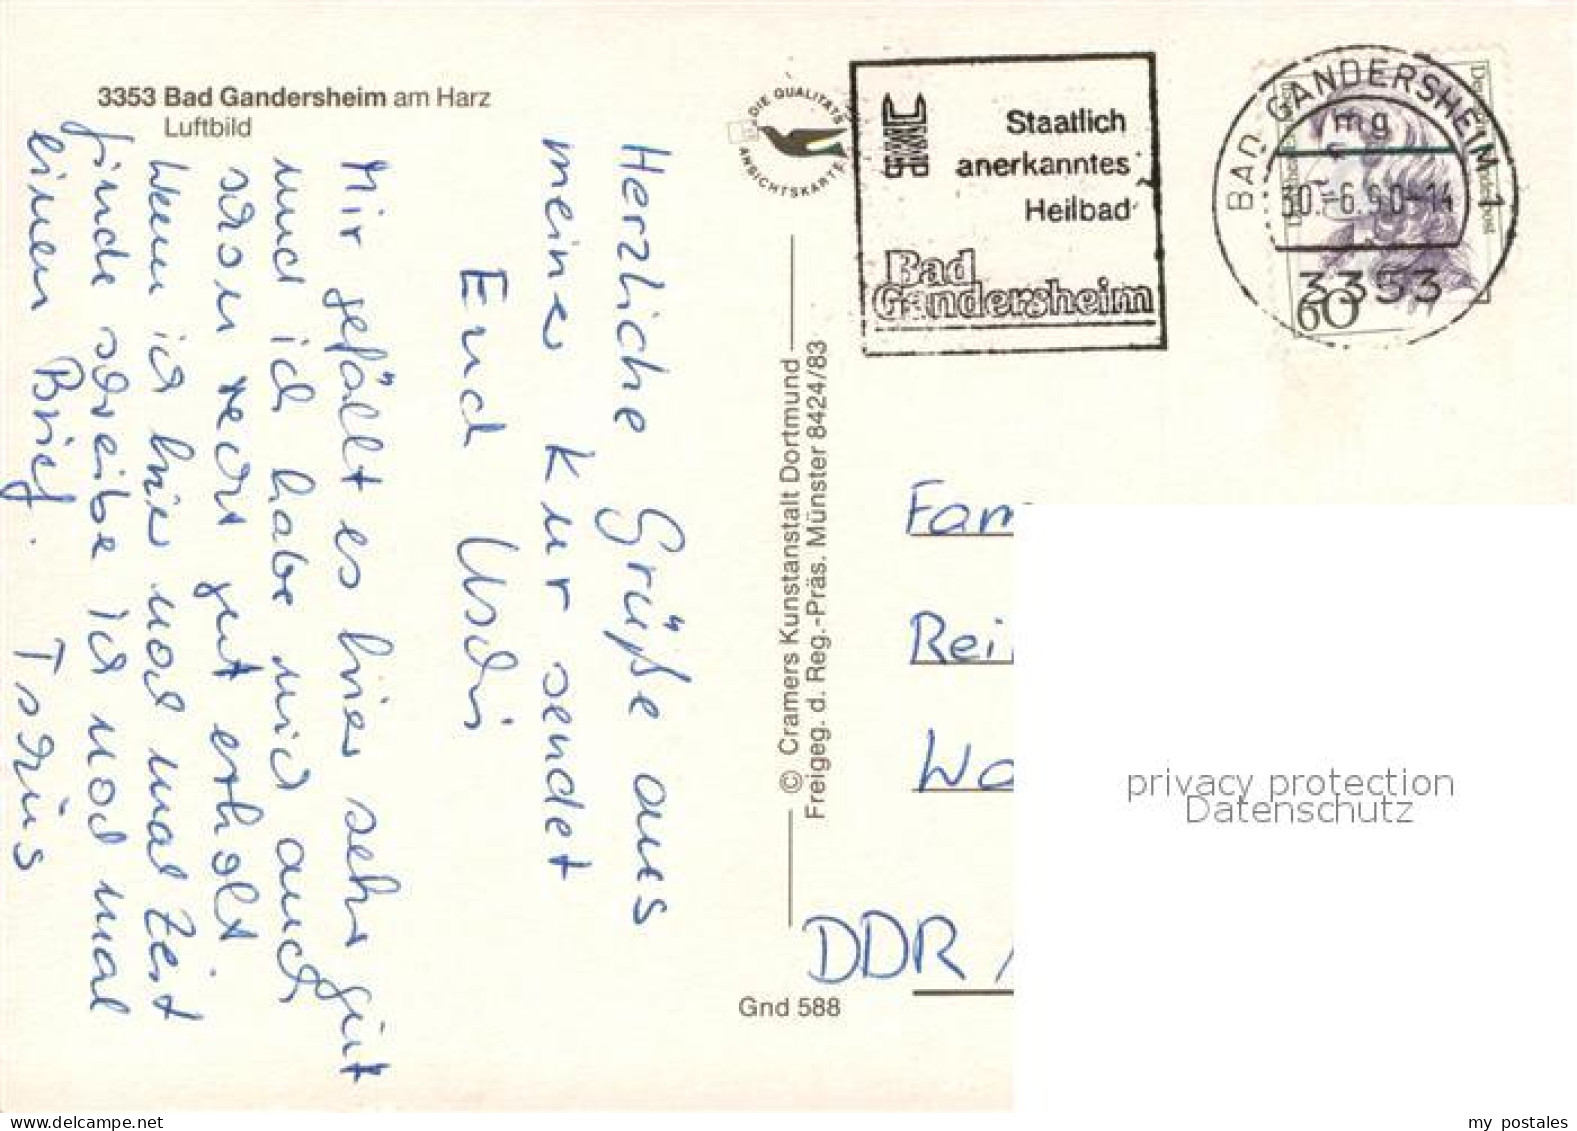 3353 Bad Gandersheim am Harz
Luftbild
DIE QUALITÄTS
ANSICHTSKARTE
Staatlich
anerkanntes
Heilbad
Bad
Gandersheim
BAD GANDERSHEIM 1
mg
30.-6.90-14
3353
60
Deutsche Bundespost
Herzliche Grüße aus
meiner Kur sendet
Euch Uschi
Mir gefällt es hier sehr gut
und ich habe mich auch
schon recht gut erholt.
Wenn ich hier noch mal Zeit
finde schreibe ich noch mal
einen Brief. Tschüs
© Cramers Kunstanstalt Dortmund
Freigeg. d. Reg.-Präs. Münster 8424/83
Fam
Rei
Wa
DDR /
Gnd 588
privacy protection
Datenschutz
www.delcampe.net
my_postales